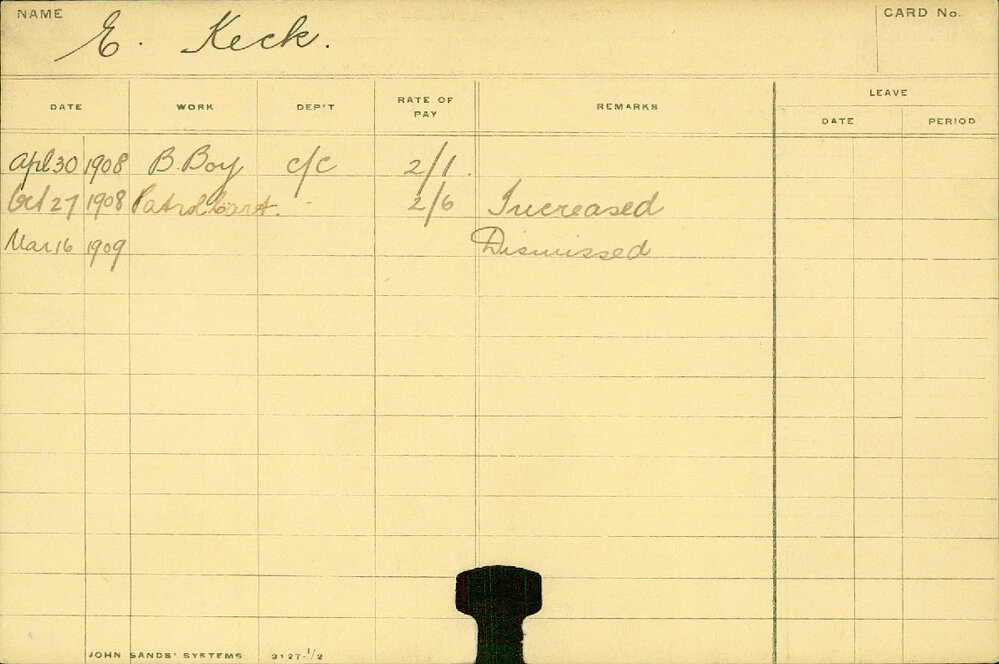 NAME E. Keck. CARD No.
DATE WORK DEP'T RATE OF PAY REMARKS LEAVE
DATE PERIOD
Apl 30 1908 B. Boy c/c 2/1.
Oct 27 1908 Patrol Cart. " 2/6 Increased
Mar 16 1909 Dismissed
JOHN SANDS' SYSTEMS 3127-1/2